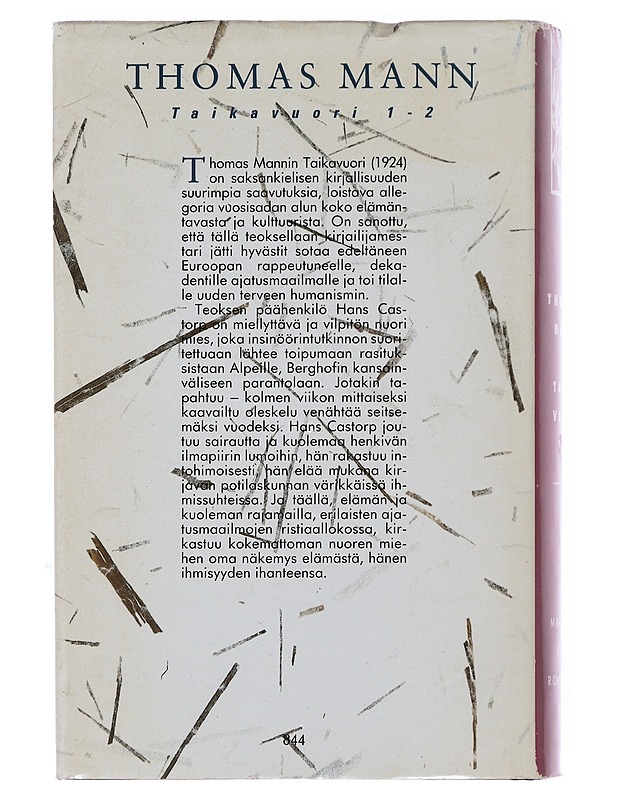 THOMAS MANN
Taikavuori 1-2
Thomas Mannin Taikavuori (1924)
on saksankielisen kirjallisuuden
suurimpia saavutuksia, loistava alle-
goria vuosisadan alun koko elämän-
tavasta ja kulttuurista. On sanottu,
että tällä teoksellaan kirjailijames-
tari jätti hyvästit sotaa edeltäneen
Euroopan rappeutuneelle, deka-
dentille ajatusmaailmalle ja toi tilal-
le uuden terveen humanismin.
Teoksen päähenkilö Hans Cas-
torp on miellyttävä ja vilpitön nuori
mies, joka insinöörintutkinnon suori-
tettuaan lähtee toipumaan rasituk-
sistaan Alpeille, Berghofin kansain-
väliseen parantolaan. Jotakin ta-
pahtuu – kolmen viikon mittaiseksi
kaavailtu oleskelu venähtää seitse-
mäksi vuodeksi. Hans Castorp jou-
tuu sairautta ja kuolemaa henkivän
ilmapiirin lumoihin, hän rakastuu in-
tohimoisesti, hän elää mukana kir-
javan potilaskunnan värikkäissä ih-
missuhteissa. Ja täällä, elämän ja
kuoleman rajamailla, erilaisten aja-
tusmaailmojen ristiaallokossa, kir-
kastuu kokemattoman nuoren mie-
hen oma näkemys elämästä, hänen
ihmisyyden ihanteensa.
844